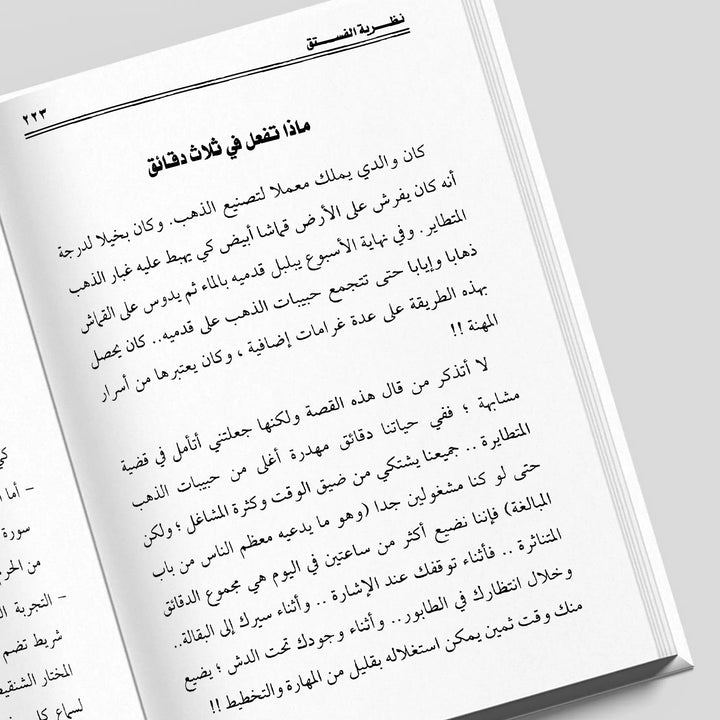 نظرية الفستق
٢٢٣
ماذا تفعل في ثلاث دقائق
كان والدي يملك معملا لتصنيع الذهب. وكان بخيلا لدرجة
أنه كان يفرش على الأرض قماشا أبيض كي يهبط عليه غبار الذهب
المتطاير. وفي نهاية الأسبوع يبلبل قدميه بالماء ثم يدوس على القماش
ذهابا وإيابا حتى تتجمع حبيبات الذهب على قدميه.. كان يحصل
بهذه الطريقة على عدة غرامات إضافية ، وكان يعتبرها من أسرار
المهنة !!
لا أتذكر من قال هذه القصة ولكنها جعلتني أتأمل في قضية
مشابهة ؛ ففي حياتنا دقائق مهدرة أغلى من حبيبات الذهب
المتطايرة .. جميعنا يشتكي من ضيق الوقت وكثرة المشاغل ؛ ولكن
حتى لو كنا مشغولين جدا (وهو ما يدعيه معظم الناس من باب
المبالغة) فإننا نضيع أكثر من ساعتين في اليوم هي مجموع الدقائق
المتناثرة .. فأثناء توقفك عند الإشارة .. وأثناء سيرك إلى البقالة..
وخلال انتظارك في الطابور.. وأثناء وجودك تحت الدش ؛ يضيع
منك وقت ثمين يمكن استغلاله بقليل من المهارة والتخطيط !!
كي
– أما
سورة
من الحرم
– التجربة
شريط تضم
المختار الشنقيط
لسماع كل